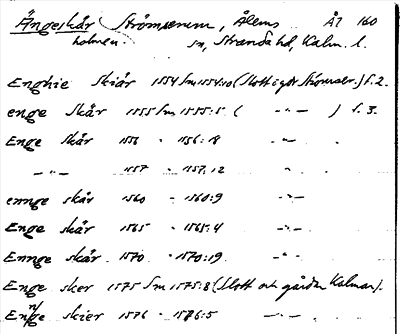 Ängeskär Strömserum, Ålems Äl 160
holmen sn, Stranda hd, Kalm. l.
Enghie Skiär 1554 Sm 1554:10 (Slott i gör Strömser.) f. 2.
enge Skär 1555 Sm 1555:5 ( -"- ) f. 3.
Enge Skär 1556 - 1556:18 -"-
-"- 1557 - 1557:12 -"-
ennge skär 1560 - 1560:9 -"-
Enge skär 1565 - 1565:4 -"-
Ennge skär 1570 - 1570:19 -"-
Enge sker 1575 Sm 1575:8 (Slott och gården Kalmar).
Enge skier 1576 - 1576:5 -"-